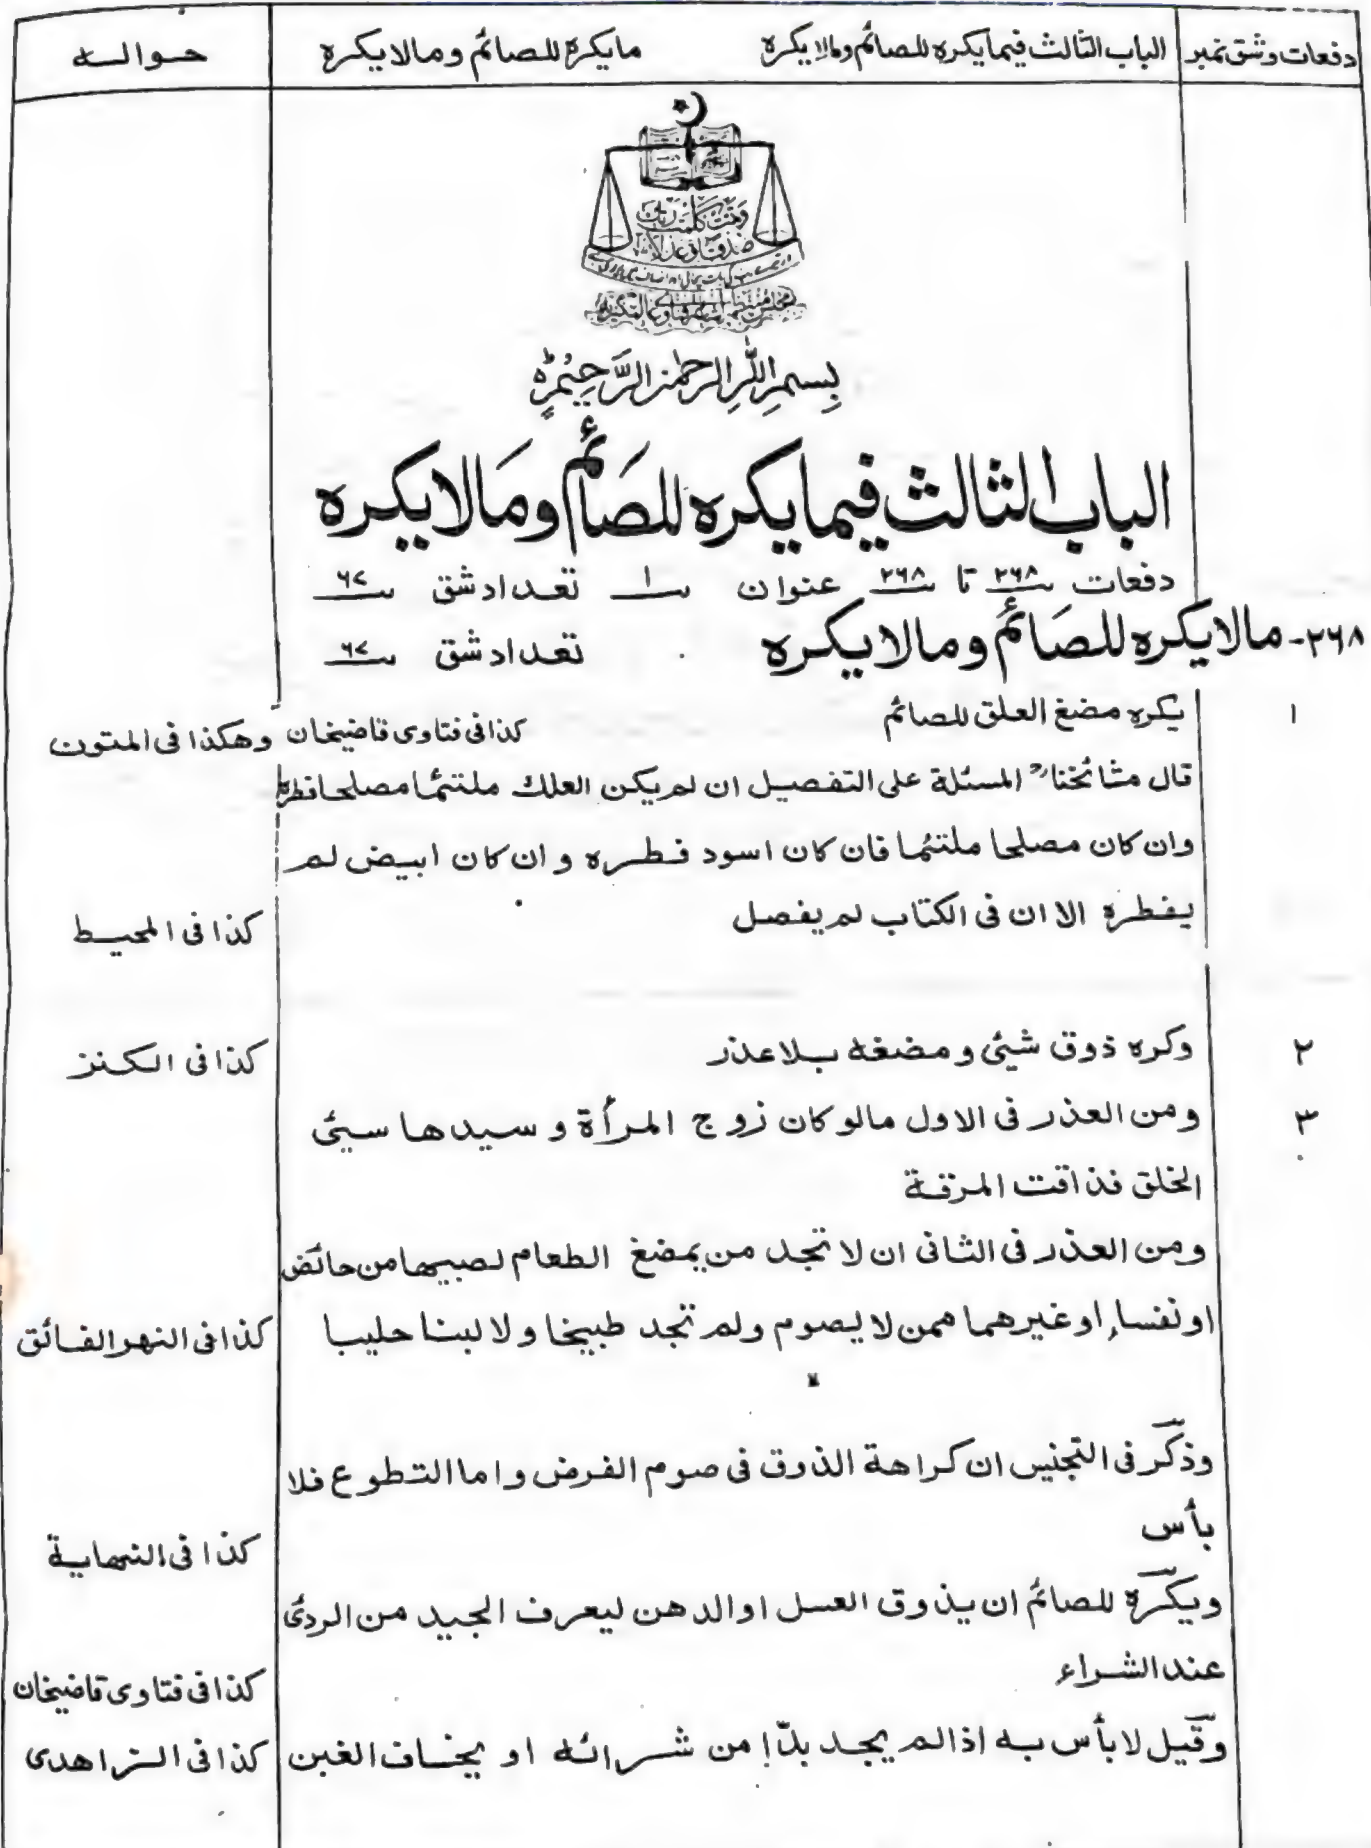 دفعات وشق نمبر الباب الثالث فيما يكره للصائم ومالا يكره مايكرة للصائم ومالا يكره حوالہ
وتمت كلمت ربك
صدقا وعدلا
بسم الله الرحمن الرحيم
الباب الثالث فيما يكره للصائم ومالا يكره
دفعات ۲۶۸ تا ۲۶۸ عنوان ۱ تعداد شق ۶۷
۲۶۸- مالا يكره للصائم ومالا يكره تعداد شق ۶۷
۱ يكره مضغ العلق للصائم كذا فى فتاوى قاضيخان وهكذا فى المتون
قال مشائخنا المسئلة على التفصيل ان لم يكن العلك ملتئما مصلحا فطره
وان كان مصلحا ملتئما فان كان اسود فطره وان كان ابيض لم
يفطره الا ان فى الكتاب لم يفصل كذا فى المحيط
۲ وكره ذوق شيئ ومضغه بلا عذر كذا فى الكنز
۳ ومن العذر فى الاول مالو كان زوج المرأة وسيدها سيئ
الخلق فذاقت المرقة
ومن العذر فى الثانى ان لا تجد من يمضغ الطعام لصبيها من حائض
او نفساء او غيرهما ممن لا يصوم ولم تجد طبيخا ولا لبنا حليبا كذا فى النهر الفائق
وذكر فى التجنيس ان كراهة الذوق فى صوم الفرض واما التطوع فلا
بأس كذا فى النهاية
ويكرة للصائم ان يذوق العسل او الدهن ليعرف الجيد من الردئ
عند الشراء كذا فى فتاوى قاضيخان
وقيل لا بأس به اذا لم يجد بدّا من شرائه او يخاف الغبن كذا فى الزاهدى